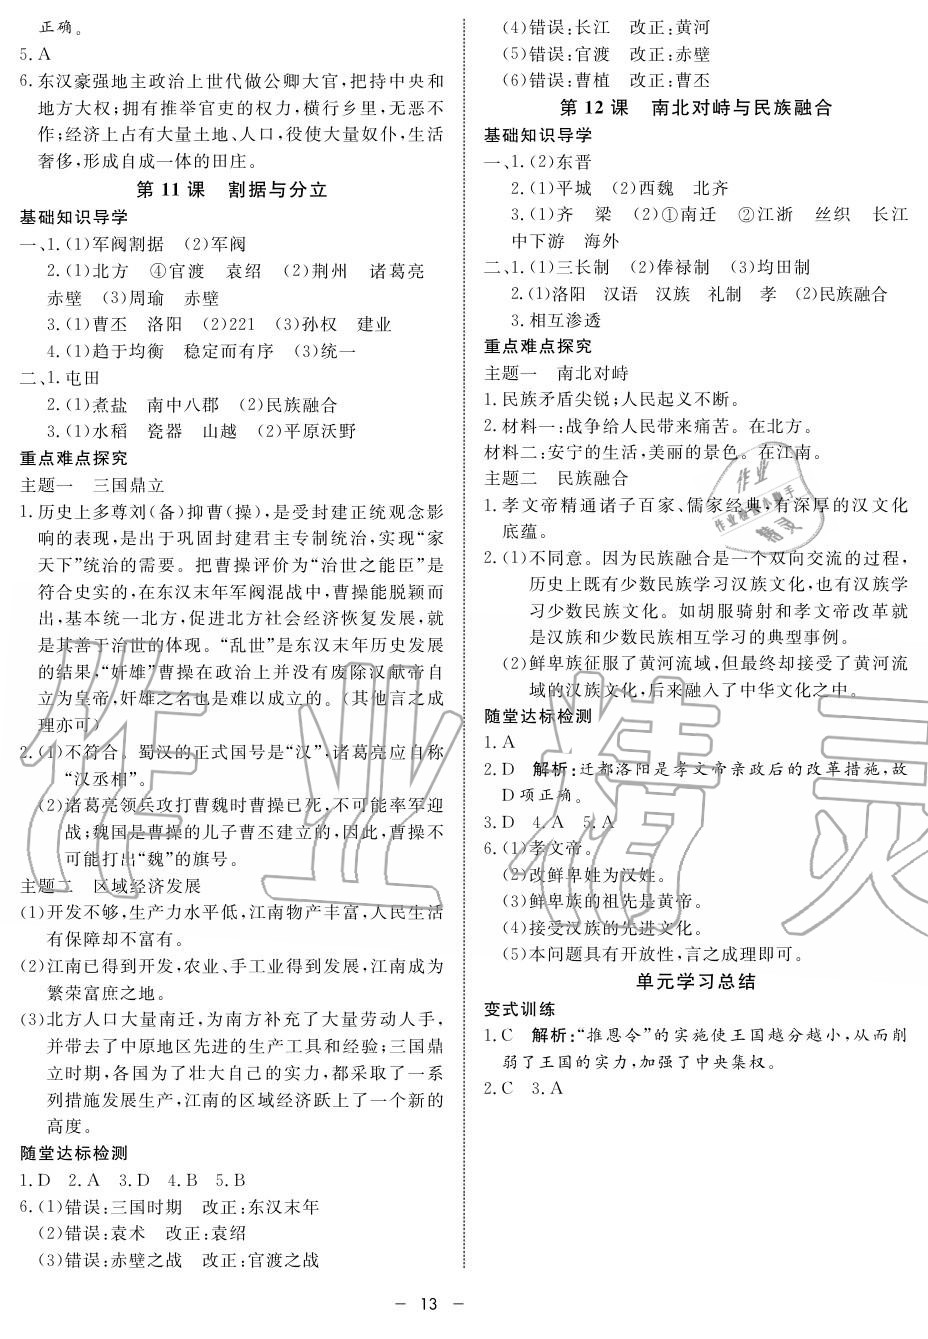 正确。
5. A
6. 东汉豪强地主政治上世代做公卿大官,把持中央和
地方大权;拥有推举官吏的权力,横行乡里,无恶不
作;经济上占有大量土地、人口,役使大量奴仆,生活
奢侈,形成自成一体的田庄。
第 11 课　割据与分立
基础知识导学
一、1. (1)军阀割据　(2)军阀
2. (1)北方　④官渡　袁绍　(2)荆州　诸葛亮
赤壁　(3)周瑜　赤壁
3. (1)曹丕　洛阳　(2)221　(3)孙权　建业
4. (1)趋于均衡　稳定而有序　(3)统一
二、1. 屯田
2. (1)煮盐　南中八郡　(2)民族融合
3. (1)水稻　瓷器　山越　(2)平原沃野
重点难点探究
主题一　三国鼎立
1. 历史上多尊刘(备)抑曹(操),是受封建正统观念影
响的表现,是出于巩固封建君主专制统治,实现“家
天下”统治的需要。把曹操评价为“治世之能臣”是
符合史实的,在东汉末年军阀混战中,曹操能脱颖而
出,基本统一北方,促进北方社会经济恢复发展,就
是其善于治世的体现。“乱世”是东汉末年历史发展
的结果,“奸雄”曹操在政治上并没有废除汉献帝自
立为皇帝,奸雄之名也是难以成立的。(其他言之成
理亦可)
2. (1)不符合。蜀汉的正式国号是“汉”,诸葛亮应自称
“汉丞相”。
(2)诸葛亮领兵攻打曹魏时曹操已死,不可能率军迎
战;魏国是曹操的儿子曹丕建立的,因此,曹操不
可能打出“魏”的旗号。
主题二　区域经济发展
(1)开发不够,生产力水平低,江南物产丰富,人民生活
有保障却不富有。
(2)江南已得到开发,农业、手工业得到发展,江南成为
繁荣富庶之地。
(3)北方人口大量南迁,为南方补充了大量劳动人手,
并带去了中原地区先进的生产工具和经验;三国鼎
立时期,各国为了壮大自己的实力,都采取了一系
列措施发展生产,江南的区域经济跃上了一个新的
高度。
随堂达标检测
1. D　2. A　3. D　4. B　5. B
6. (1)错误:三国时期　改正:东汉末年
(2)错误:袁术　改正:袁绍
(3)错误:赤壁之战　改正:官渡之战
(4)错误:长江　改正:黄河
(5)错误:官渡　改正:赤壁
(6)错误:曹植　改正:曹丕
第 12 课　南北对峙与民族融合
基础知识导学
一、1. (2)东晋
2. (1)平城　(2)西魏　北齐
3. (1)齐　梁　(2)①南迁　②江浙　丝织　长江
中下游　海外
二、1. (1)三长制　(2)俸禄制　(3)均田制
2. (1)洛阳　汉语　汉族　礼制　孝　(2)民族融合
3. 相互渗透
重点难点探究
主题一　南北对峙
1. 民族矛盾尖锐;人民起义不断。
2. 材料一:战争给人民带来痛苦。在北方。
材料二:安宁的生活,美丽的景色。在江南。
主题二　民族融合
1. 孝文帝精通诸子百家、儒家经典,有深厚的汉文化
底蕴。
2. (1)不同意。因为民族融合是一个双向交流的过程,
历史上既有少数民族学习汉族文化,也有汉族学
习少数民族文化。如胡服骑射和孝文帝改革就
是汉族和少数民族相互学习的典型事例。
(2)鲜卑族征服了黄河流域,但最终却接受了黄河流
域的汉族文化,后来融入了中华文化之中。
随堂达标检测
1. A
2. D　解析:迁都洛阳是孝文帝亲政后的改革措施,故
D 项正确。
3. D　4. A　5. A
6. (1)孝文帝。
(2)改鲜卑姓为汉姓。
(3)鲜卑族的祖先是黄帝。
(4)接受汉族的先进文化。
(5)本问题具有开放性,言之成理即可。
单元学习总结
变式训练
1. C　解析:“推恩令”的实施使王国越分越小,从而削
弱了王国的实力,加强了中央集权。
2. C　3. A
作业精灵
作业
作业检查小助手
精灵
— 13 —